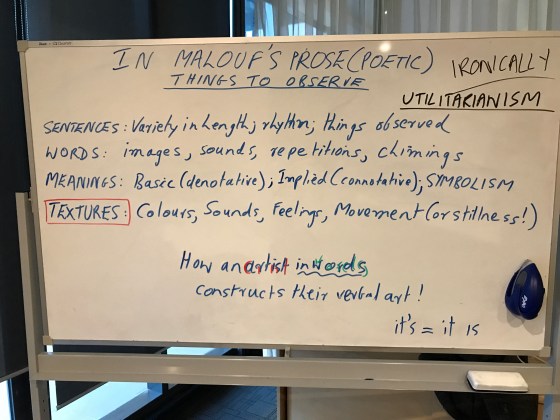 IN MALOUF'S PROSE (POETIC)
THINGS TO OBSERVE
IRONICALLY
UTILITARIANISM
SENTENCES: Variety in Length; rhythm; things observed
WORDS: images, sounds, repetitions, chimings
MEANINGS: Basic (denotative); Implied (connotative); SYMBOLISM
TEXTURES: Colours, Sounds, Feelings, Movement (or stillness!)
How an artist in words
constructs their verbal art!
it's = it is